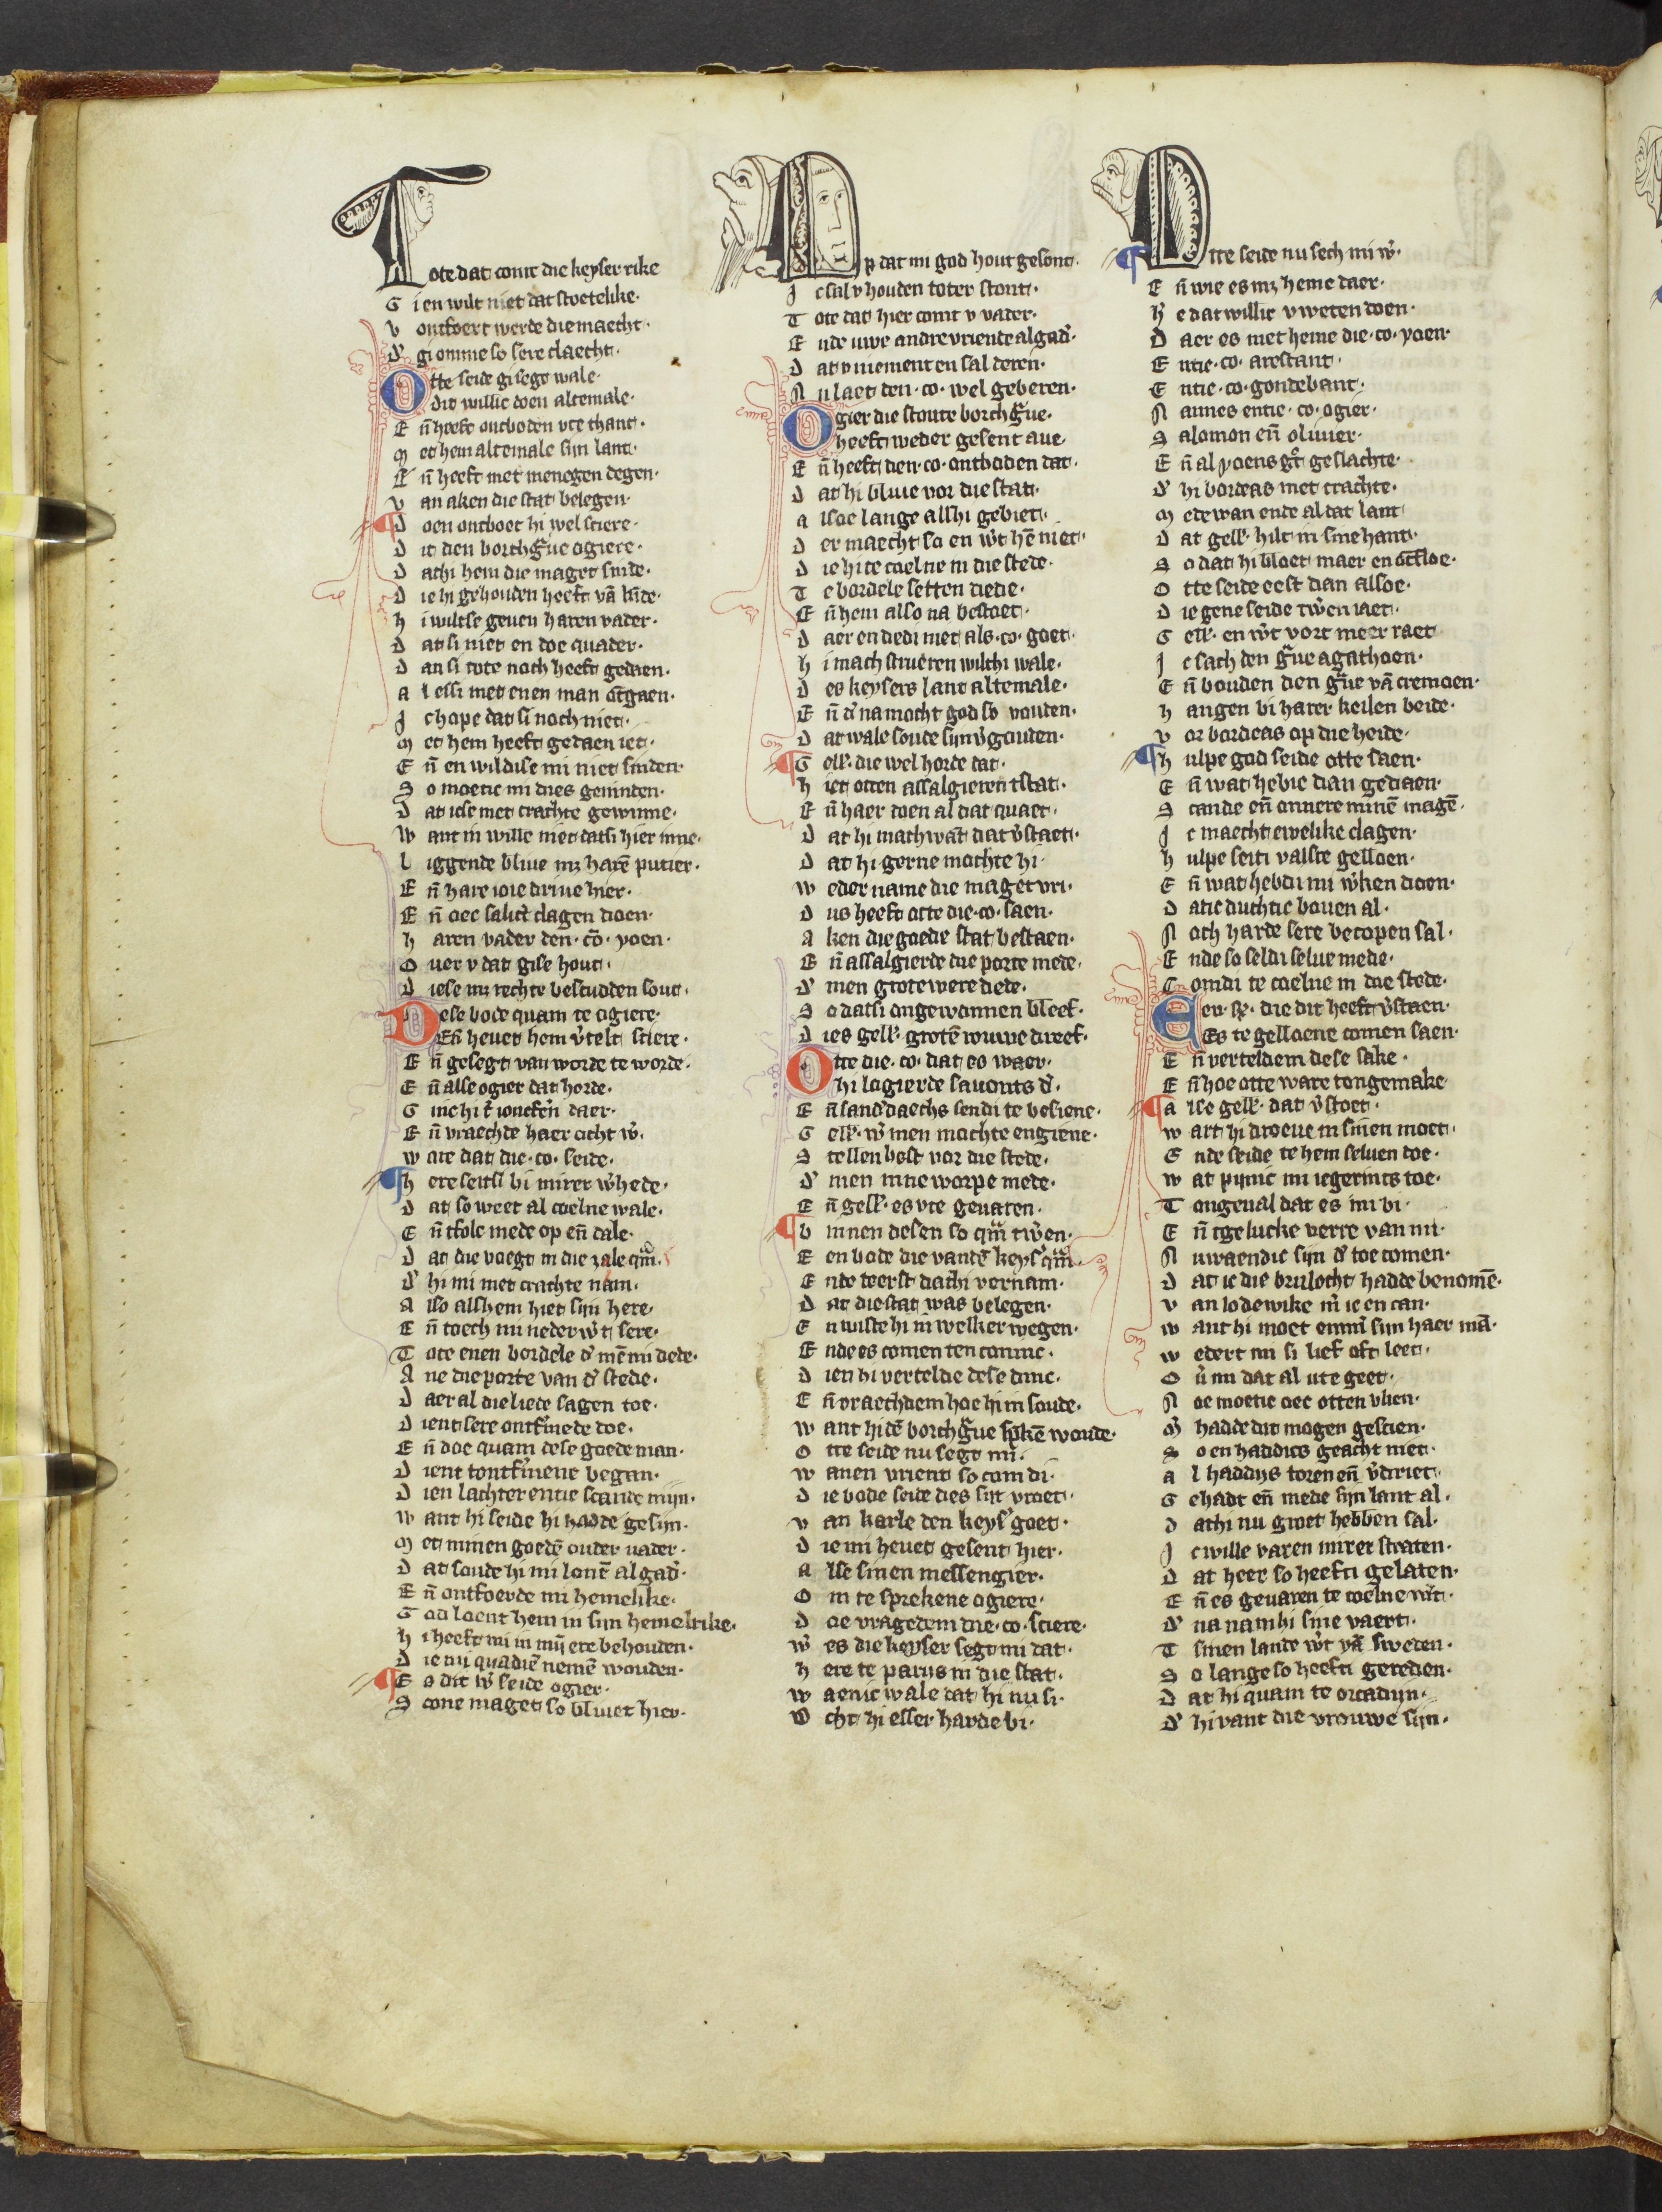 Tote dat comt die keyser rike
G i en wilt niet dat stoetelike·
v ontfoert werde die maecht·
d' gi omme so sere claecht·
Otte seide gi segt wale·
Dit willic doen altemale·
E n̄ heeft ontboden vte thant·
m et hem altemale sijn lant·
E n̄ heeft met menegen degen·
v an aken die stat belegen·
¶ D oen ontboet hi wel sciere·
D it den borchg̃ue ogiere·
D at hi hem die maget sinde·
D ie hi gehouden heeft vā kinde·
h i wiltse geuen haren vader·
D at si niet en doe quader·
D an si tote noch heeft gedaen·
a l essi met enen man ōtgaen·
J c hope dat si noch niet·
m et hem heeft gedaen iet·
E n̄ en wildise mi niet sinden·
S o moetic mi dies geuinden·
D at icse met crachte gewinne·
w ant in wille niet datsi hier inne·
l iggende bliue mz harē putier·
E n̄ hare ioie driue hier·
E n̄ oec salict clagen doen·
h aren vader den· cō· yoen·
O uer v dat gise hout·
D iese mz rechte bescudden sout·
Dese bode quam te ogiere·
En̄ heuet hem v̓telt sciere·
E n̄ gesegt van worde te worde·
E n̄ alse ogier dat horde·
G inc hi t̓ ioncfr̄n daer·
E n̄ vraechde haer ocht w̓·
w are dat die·co· seide·
¶ h ere seitsi bi mirer w̓hede·
D at so weet al coelne wale·
E n̄ tfolc mede op en̄ dale·
D at die voegt in die zale qm̄·
d' hi mi met crachte nam·
A lso alshem hiet sijn here·
E n̄ toech mi neder w̓t sere·
T ote enen bordele d' mē mi dede·
A ne die porte van d' stede·
D aer al die liede sagen toe·
D ient sere ontf̓mede doe·
E n̄ doe quam dese goede man·
D ient tontf̓mene began·
D ien lachter entie scande mijn·
w ant hi seide hi hadde gesijn·
m et minen goedē ouder vader·
D at soude hi mi lonē algad'·
E n̄ ontfoerde mi hemelike·
G od loent hem in sijn hemelrike·
h i heeft mi in mij ere behouden·
D ie mi quadiē nemē wouden·
¶ E s dit w̓ seide ogier·
S cone maget so bliuet hier·
Op dat mi god hout gesont·
J c sal v houden toter stont·
T ote dat hier comt v vader·
E nde uwe andre vriende algad'·
D at v niement en sal deren·
N u laet den·co·wel geberen·
Ogier die stoute borchg̃ue·
heeft weder gesent aue
E n̄ heeft den·co·ontboden dat·
D at hi bliue vor die stat·
a lsoe lange alshi gebiet·
D er maecht so en w̓t hē niet·
D ie hi te coelne in die stede·
T e bordele setten dede·
E n̄ hem also na bestoet·
D aer en dedi niet als·co·goet·
h i mach strueren wilthi wale·
D es keysers lant altemale·
E n̄ d' na mocht god so vouden·
D at wale soude sijn v̓gouden·
¶ G ell̓· die wel horde dat·
h iet otten assalgieren tstat·
E n̄ haer doen al dat quaet·
D at hi mach want dat v̓staet·
D at hi gerne mochte hi·
w eder name die maget vri·
D us heeft otte die·co·saen·
A ken die goede stat bestaen·
E n̄ assalgierde die porte mede·
d' men grote were dede·
S o datsi ongewonnen bleef·
D ies gell̓· grotē rouwe dreef·
Otte die·co·dat es waer·
hi logierde sauonts d'·
E n̄ sand'daechs sendi te besiene·
G ell̓· w̓ men mochte engiene·
S tellen best vor die stede·
d' men inne worpe mede·
E n̄ gell̓· es vte geuaren·
¶ b innen desen so qm̄ tw̓en·
E en bode die vandē keys' qm̄·
E nde teerst dathi vernam·
D at die stat was belegen·
E n wiste hi in welker wegen·
E nde es comen ten coninc·
D ien hi vertelde dese dinc·
E n̄ vraechdem hoe hi in soude·
w ant hi dē borchg̃ue sp̓kē woude·
O tte seide nu segt mi·
w anen vrient so com di·
D ie bode seide dies sijt vroet·
v an karle den keys' goet·
D ie mi heuet gesent hier·
a lse sinen messengier·
O m te sprekene ogiere·
D oe vragedem die·co·sciere·
w̓ es die keyser segt mi dat·
h ere te parijs in die stat·
w aenic wale dat hi nu si·
O cht hi esser harde bi·
¶ Otte seide nu sech mi w̓·
E n̄ wie es mz heme daer·
h e dat willic v weten doen·
D aer es met heme die·co·yoen·
E ntie·co·arestant·
E ntie·co·gondebant·
N aimes entie·co·ogier·
S alomon en̄ oliuier·
E n̄ al yoens gt̄ geslachte·
d' hi bordeas met crachte·
m ede wan ende al dat lant
D at gell̓· hilt in sine hant·
S o dat hi bloet maer en ōtfloe·
O tte seide eest dan alsoe·
D ie gene seide tw̓en iaet·
G ell̓· en w̓t vort meer raet
J c sach den g̃ue agathoen·
E n̄ bouden den g̃ue vā cremoen·
h angen bi harer keilen beide·
v or bordeas op die heide·
¶ h ulpe god seide otte saen·
E n̄ wat hebic dan gedaen·
S cande en̄ onnere minē magē·
J c maecht ewelike clagen·
h ulpe seiti valsce gelloen·
E n̄ wat hebdi mi w̓ken doen·
D atic duchtic bouen al·
N och harde sere becopen sal·
E nde so seldi selue mede·
C omdi te coelne in die stede·
Een·sp̓· die dit heeft v̓staen·
Es te gelloene comen saen·
E n̄ verteldem dese sake·
E n̄ hoe otte ware tongemake
¶ a lse gell̓· dat v̓stoet·
w art hi droeue in sinen moet·
E nde seide te hem seluen toe·
w at pijnic mi iegerincs toe·
T ongeual dat es mi bi·
E n̄ tgelucke verre van mi·
N u waendic sijn d' toe comen·
D at ic die brulocht hadde benomē·
v an lodewike m̓ ic en can·
w ant hi moet emm̓ sijn haer mā·
w edert mi si lief oft leet·
O v̓ mi dat al ute geet·
N oe moetic oec otten vlien·
m̓ hadde dit mogen gescien·
S o en haddics geacht niet·
a l haddijs toren en̄ v̓driet·
G ehadt en̄ mede sijn lant al·
D athi nu groet hebben sal·
J c wille varen mirer straten·
D at heer so heefti gelaten·
E n̄ es geuaren te coelne w̓t·
d' na nam hi sine vaert·
T sinen lande w̓t vā sweden·
S o lange so heefti gereden·
D at hi quam te orcadijn·
d' hi vant die vrouwe sijn·